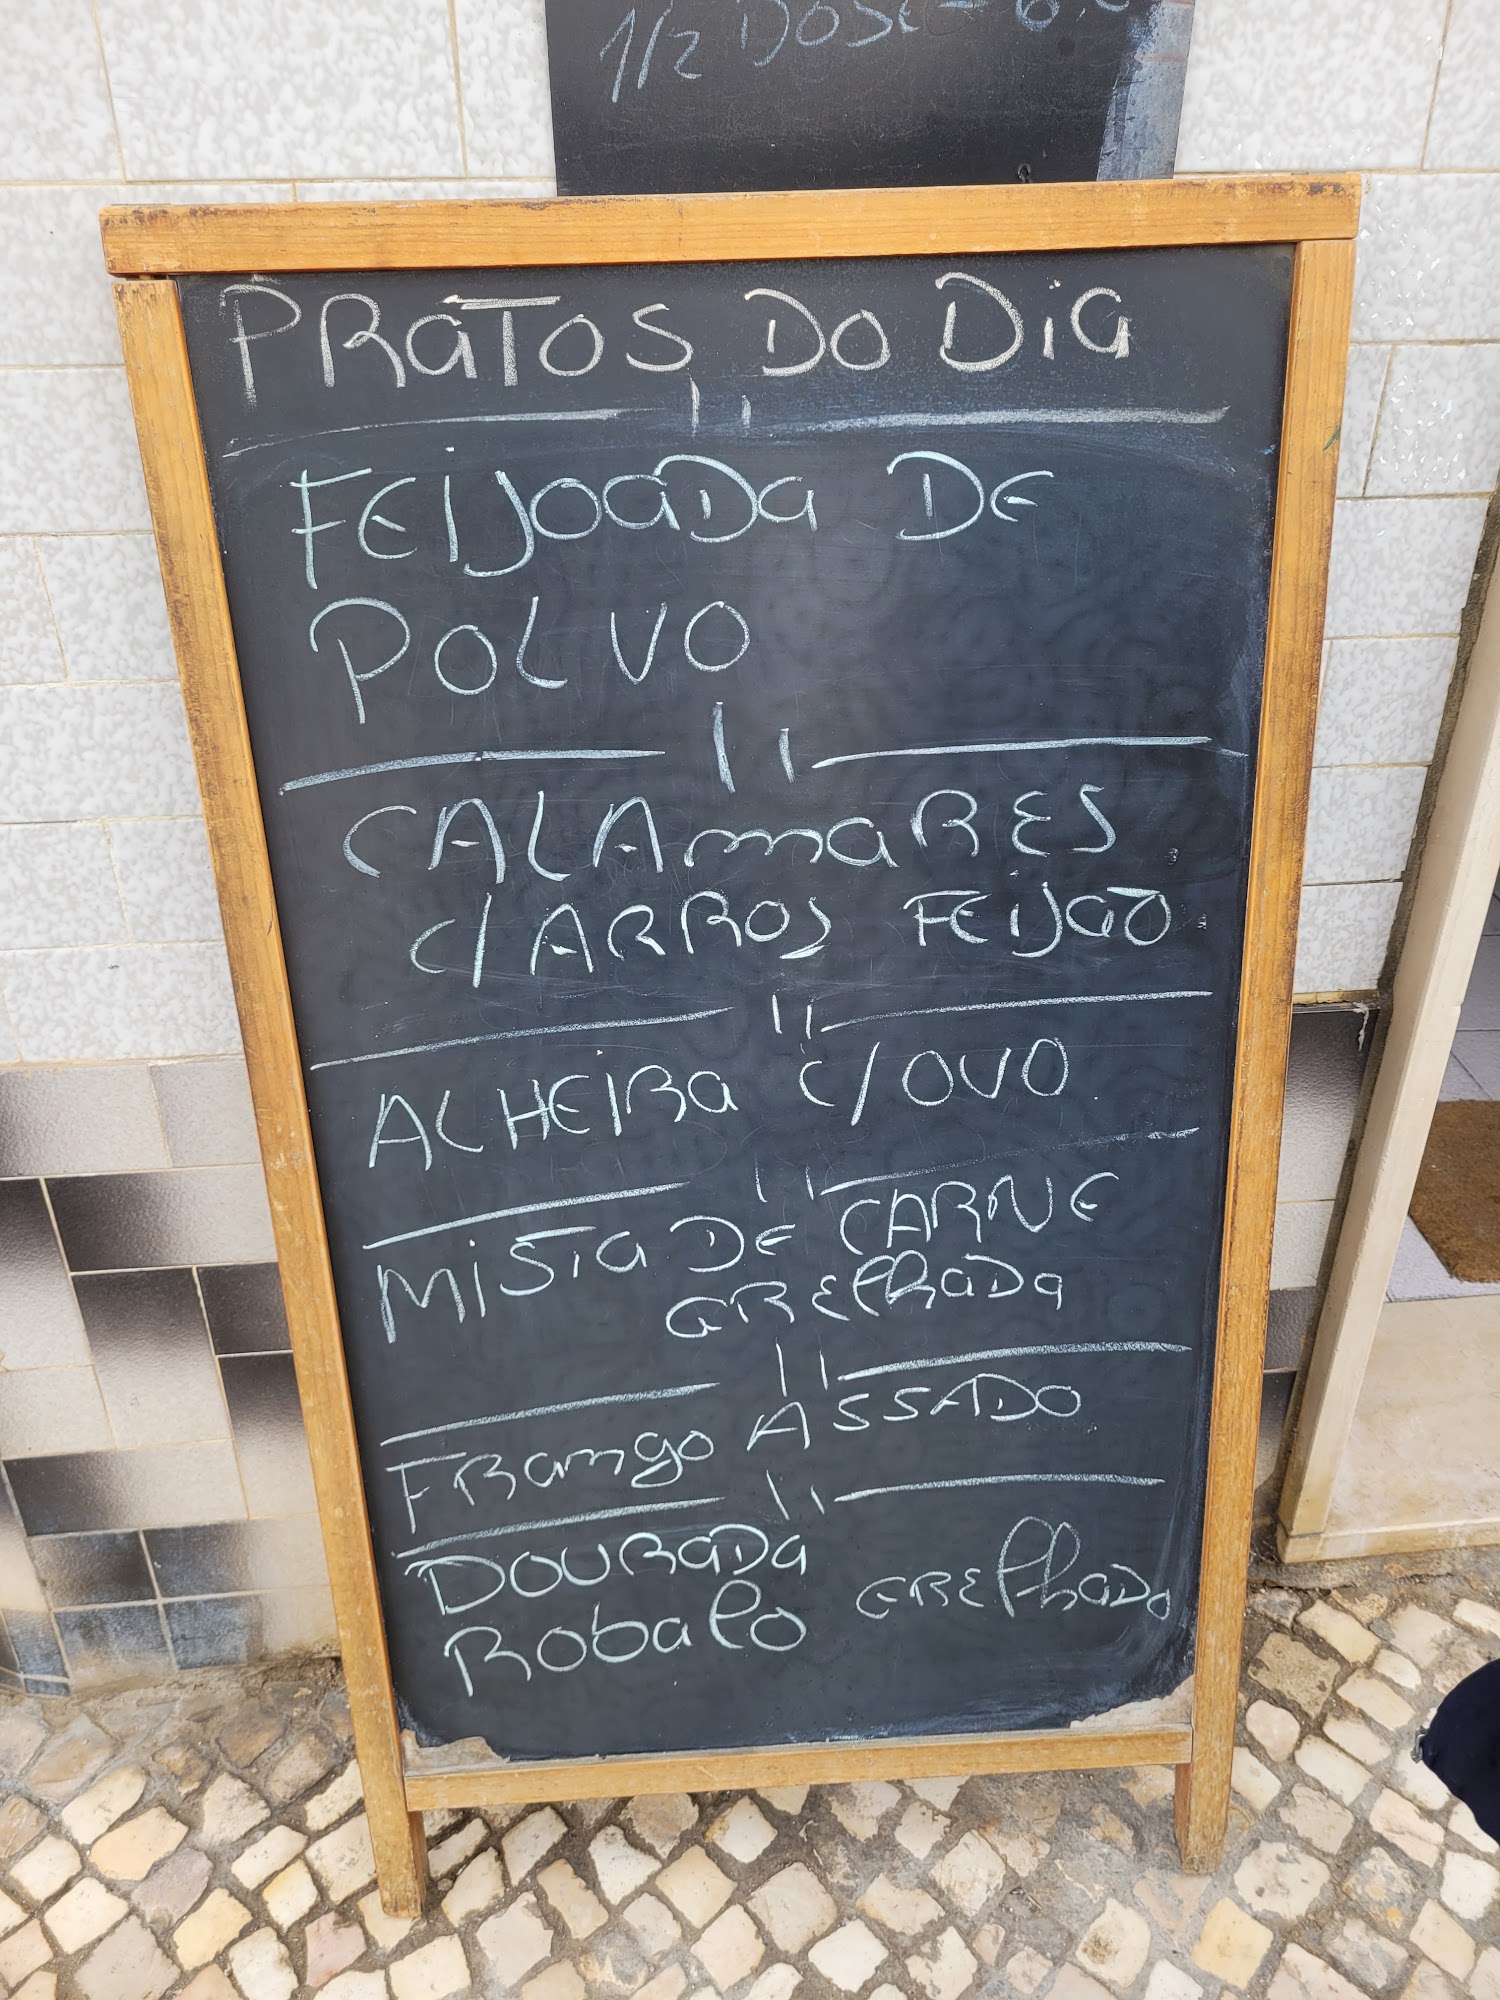 1/2 DOSE = 6
PRATOS DO DIA
FEIJOADA DE
POLVO
CALAMARES
C/ARROS FEIJÃO
ALHEIRA C/OVO
MISTA DE CARNE
GRELHADA
FRANGO ASSADO
DOURADA
ROBALO GRELHADO